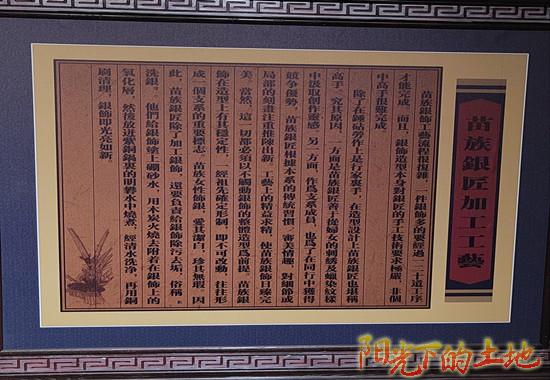 苗族銀匠加工工藝
苗族銀飾工藝流程很復雜,一件銀飾多的要經過一二十道工序
才能完成。而且,銀飾造型本身對銀匠的手工技術要求極嚴,非個
中高手很難完成。
除了在錘砧勞作上是行家裏手,在造型設計上苗族銀匠也堪稱
高手。究其原因,一方面是苗族銀匠善于從婦女的刺綉及蠟染紋樣
中汲取創作靈感;另一方面,作爲支系成員,也爲了在同行中獲得
競争優勢,苗族銀匠根據本系的傳統習慣、審美情趣,對細節或
局部的刻畫注重推陳出新。工藝上的精益求精,使苗族銀飾日臻完
美。當然,這一切都必須以不觸動銀飾的整體造型爲前提。苗族銀
飾在造型上有其穩定性,一經祖先確定形制,即不可改動,往往形
成一個支系的重要標志。苗族女性飾銀,愛其潔白,珍其無瑕。因
此,苗族銀匠除了加工銀飾,還要負責給銀飾除污去垢,俗稱“
洗銀”。他們給銀飾塗上硼砂水,用木炭火燒去附着在銀飾上的
氧化層,然後放進紫銅鍋裏的明礬水中燒煮,經清水洗净,再用銅
刷清理,銀飾即光亮如新。
阳光下的土地